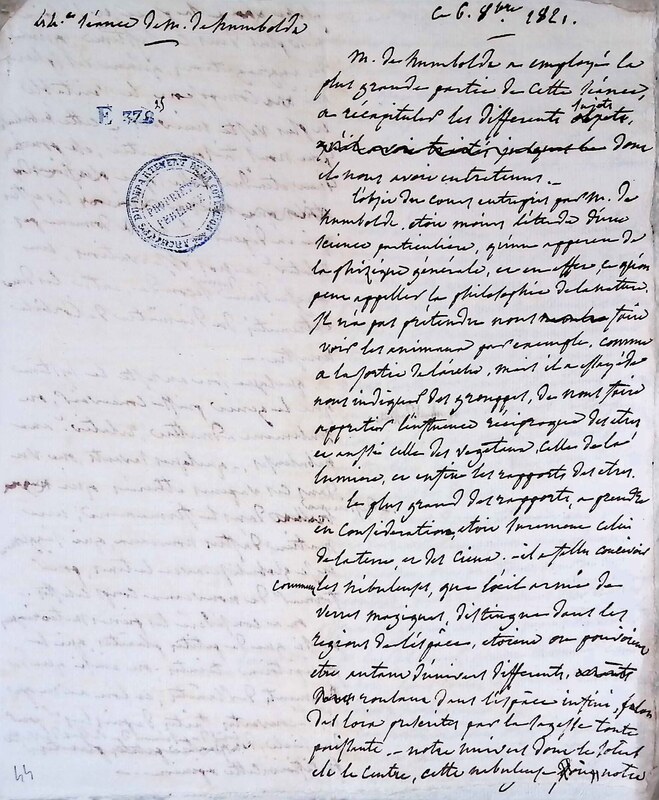 44.e Séance de M. de humbolde
Ce 6. 8bre 1821.
E 378 25
ARCHIVES DU DÉPARTEMENT DE LA
PROPRIÉTÉ
PUBLIQUE
M. de humbolde a employé la
plus grande partie de cette séance,
a récapituler les differents sujets
dont
il nous avoit entretenus. –
l'objet du cours entrepris par M. de
humbolde, etoit moins l'étude d'une
science particuliere, qu'un apperçu de
la phizique générale, et en effet, ce qu'on
peut appeller la philosophie de la nature.
Il n'a pas prétendu nous montrer faire
voir les animaux par exemple, comme
a la sortie de l'arche, mais il a essayé de
nous indiquer des grouppes, de nous faire
apprecier l'influence réciproque des etres
et aussi celle des vegetaux, celle de la
lumiere, et enfin les rapports des etres.
Le plus grand des rapports, a prendre
en consideration, etoit surement celui
de la terre et des cieux. – il a fallu concevoir
comment les nébuleuses, que l'oeil armé de
verres magiques, distingue dans les
regions de l'espace, etoient ou pouvoient
etre autant d'univers differents,
roulant dans l'espace infini, selon
des loix presentes par la sagesse toute
puissante. – notre univers dont le soleil
est le centre, cette nebuleuse notre
44